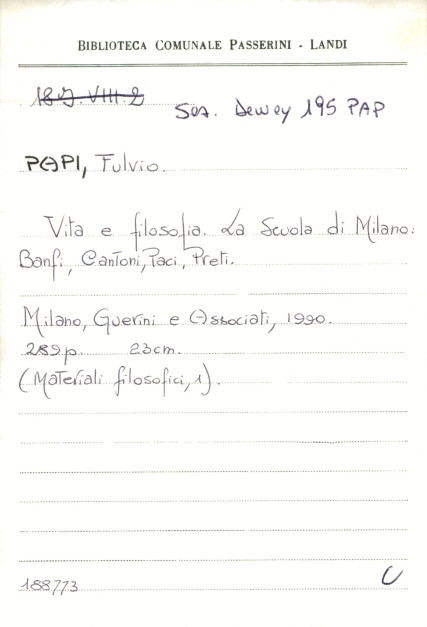 BIBLIOTECA COMUNALE PASSERINI - LANDI
Sez. Dewey 195 PAP
PAPI, Fulvio.
Vita e filosofia. La Scuola di Milano:
Banfi, Cantoni, Paci, Preti.
Milano, Guerini e Associati, 1990.
289 p. 23cm.
(Materiali filosofici, 1).
188773
C